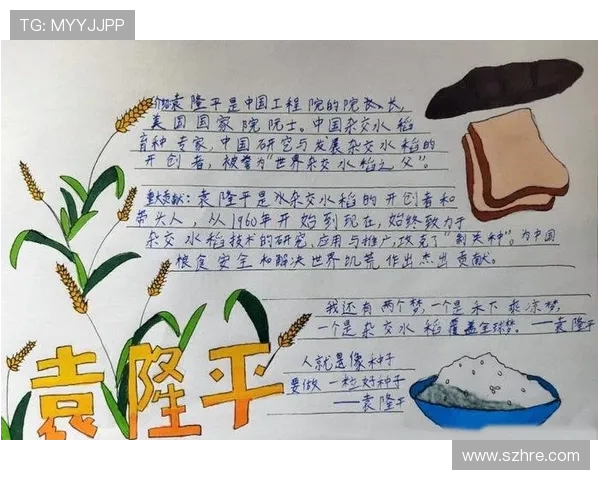 TG: MYYJJPP
介绍:袁隆平是中国工程院的院士、长,
美国国家院院士。中国杂交水稻
育种专家,中国研究与发展杂交水稻的
开创者,被誉为"世界杂交水稻之父"。
重大贡献:袁隆平是水杂交水稻的开创者和
带头人,从1960年开始到现在,始终致力于
杂交水稻技术的研究,应用与推广,攻克了"制种"。为中国
粮食安全和解决世界饥荒作出杰出贡献。
我还有两个梦,一个是禾下乘凉梦,
一个是杂交水稻覆盖全球梦。——袁隆平
人就是像种子
要做一粒好种子
——袁隆平
袁隆平
www.szhre.com